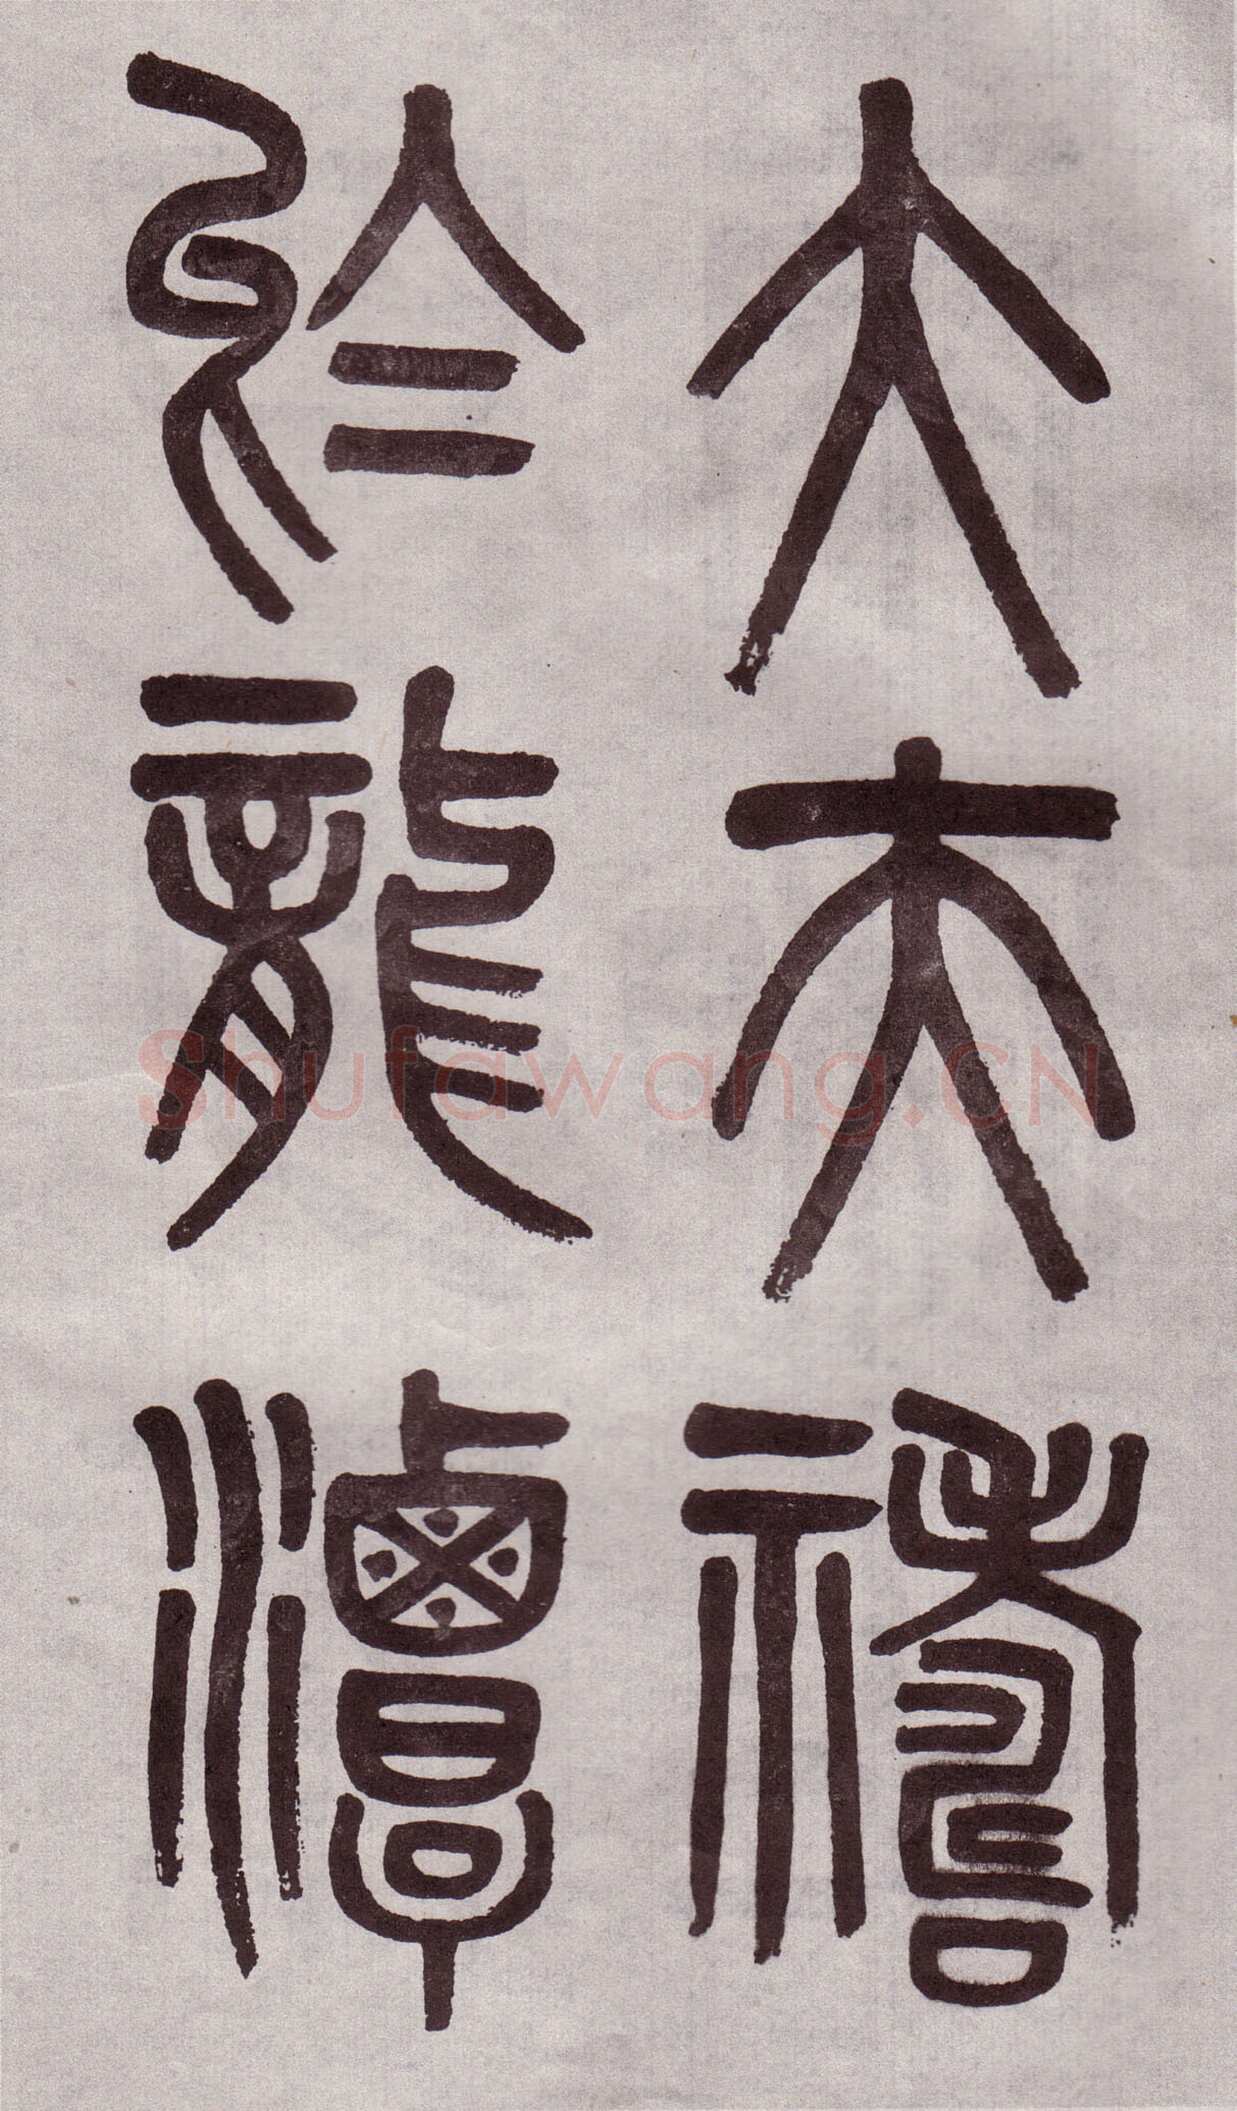 大夫禱
於龍潭
Shufawang.CN